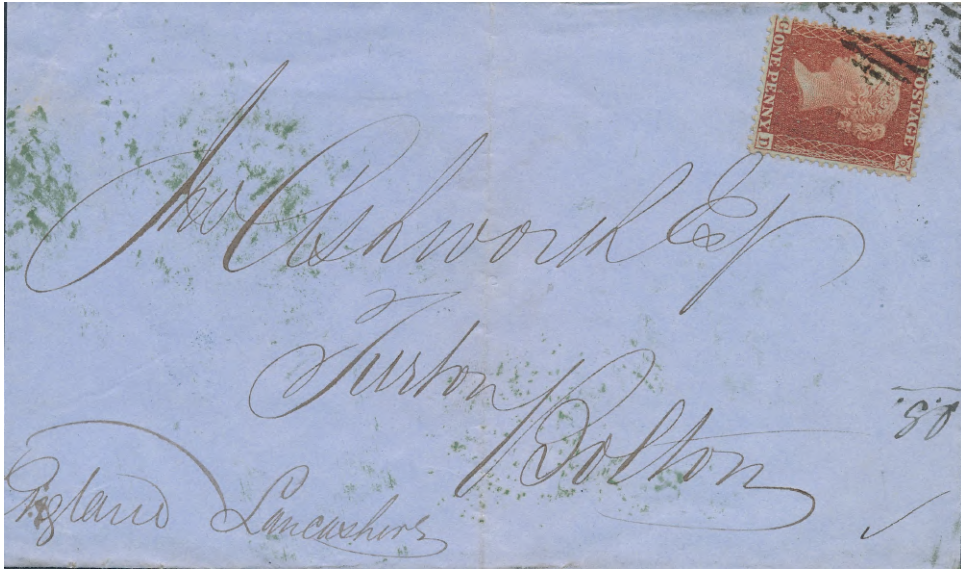 POSTAGE
ONE PENNY
G D
Jno Ashworth Esq
Turton
Bolton
England Lancashire